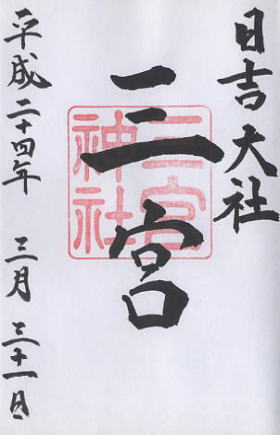 日吉大社
三宮
三宮
神社
平成二十四年 三月 三十一日